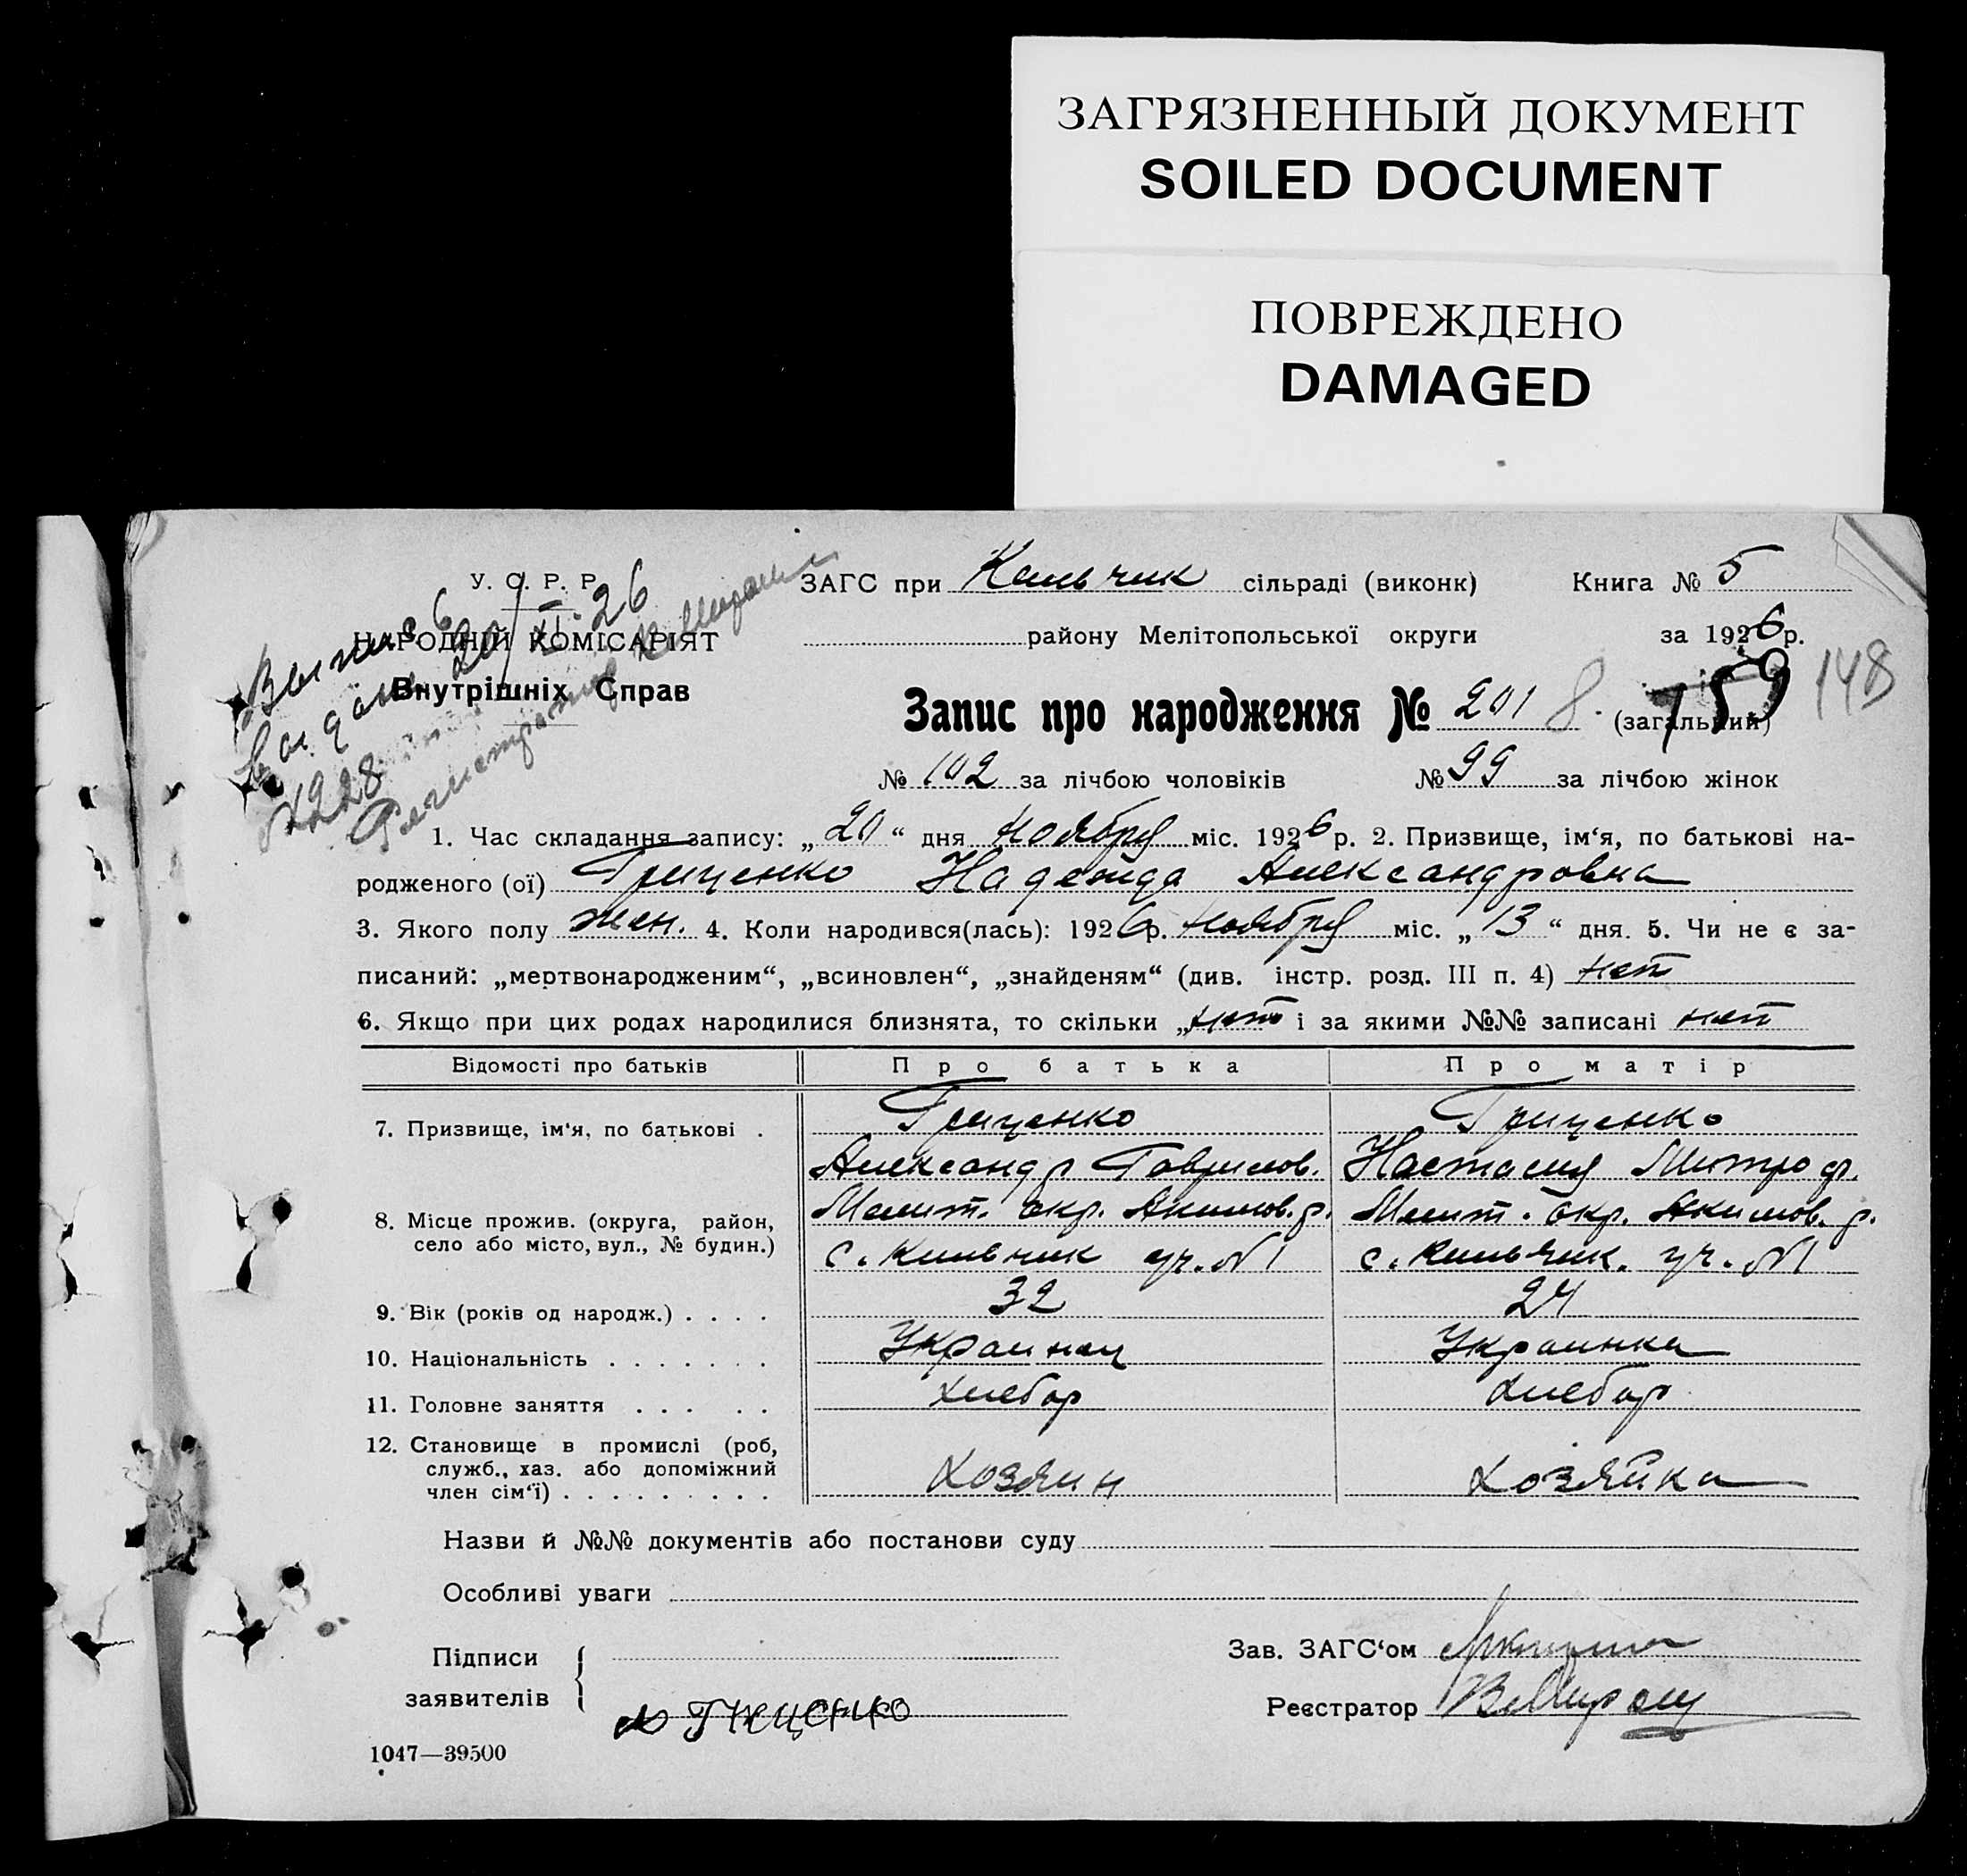 ЗАГРЯЗНЕННЫЙ ДОКУМЕНТ
SOILED DOCUMENT
ПОВРЕЖДЕНО
DAMAGED
У. С. Р. Р.
НАРОДНІЙ КОМІСАРІЯТ
Внутрішніх Справ
20/XI-26
№228
ЗАГС при Кильчик сільраді (виконк) Книга № 5
району Мелітопольської округи за 1926 р.
159 148
Запис про народження № 201 8. (загальний)
№ 102 за лічбою чоловіків № 99 за лічбою жінок
1. Час складання запису: „20“ дня Ноября міс. 1926 р. 2. Призвище, ім‘я, по батькові на-
родженого (ої) Гриценко Надежда Александровна
3. Якого полу жен. 4. Коли народився(лась): 1926 р. Ноября міс. „13“ дня. 5. Чи не є за-
писаний: „мертвонародженим“, „всиновлен“, „знайденям“ (див. інстр. розд. III п. 4) нет
6. Якщо при цих родах народилися близнята, то скільки „нет і за якими №№ записані нет
Відомості про батьків Про батька Про матір
7. Призвище, ім‘я, по батькові . Гриценко Гриценко
Александр Гаврилов. Настасия Митроф.
8. Місце прожив. (округа, район, Мелит. окр. Акимов. р. Мелит. окр. Акимов. р.
село або місто, вул., № будин.) с. Кильчик уч. №1 с. Кильчик. уч. №1
9. Вік (років од народж.) . . . . 32 24
10. Національність . . . . . . . Украинец Украинка
11. Головне заняття . . . . . Хлебор Хлебор
12. Становище в промислі (роб, служб., хаз. або допоміжний член сім‘ї) . . . . . . . . . Хозяин Хозяйка
Назви й №№ документів або постанови суду
Особливі уваги
Підписи
заявителів
Зав. ЗАГС‘ом
Реєстратор
1047—39500